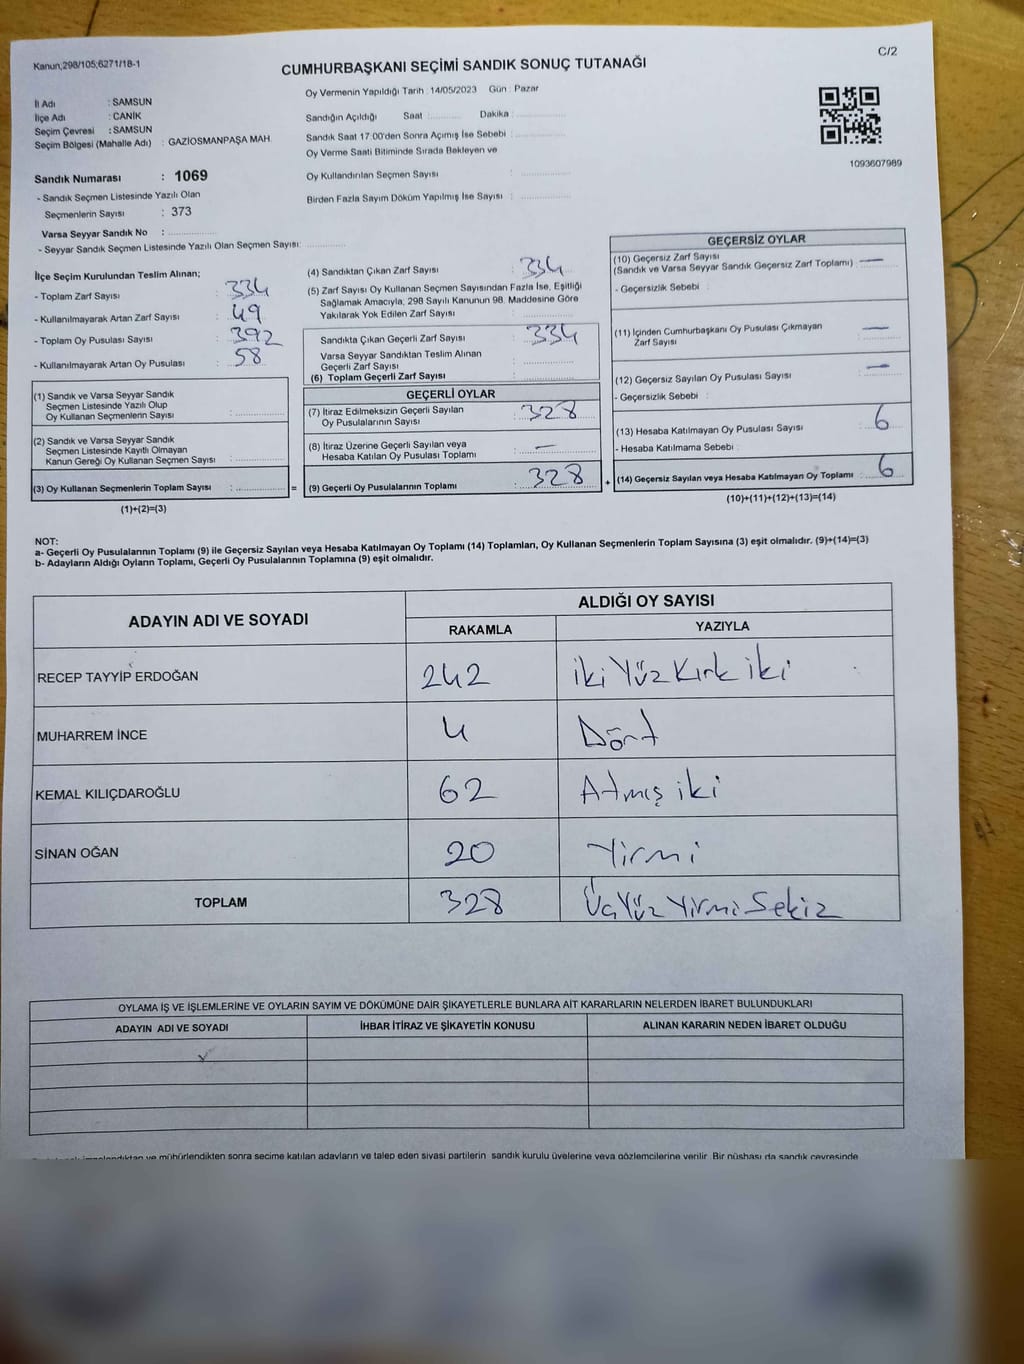 C/2
Kanun;298/105;6271/18-1
CUMHURBAŞKANI SEÇİMİ SANDIK SONUÇ TUTANAĞI
Oy Vermenin Yapıldığı Tarih : 14/05/2023 Gün : Pazar
İl Adı : SAMSUN
İlçe Adı : CANİK
Seçim Çevresi : SAMSUN
Seçim Bölgesi (Mahalle Adı) : GAZİOSMANPAŞA MAH.
Sandığın Açıldığı Saat ............ Dakika : ............
Sandık Saat 17:00'den Sonra Açımış İse Sebebi : ............
Oy Verme Saati Bitiminde Sırada Bekleyen ve
Oy Kullandırılan Seçmen Sayısı : ............
Birden Fazla Sayım Döküm Yapılmış İse Sayısı : ............
1093607989
Sandık Numarası : 1069
- Sandık Seçmen Listesinde Yazılı Olan
Seçmenlerin Sayısı : 373
Varsa Seyyar Sandık No : ............
- Seyyar Sandık Seçmen Listesinde Yazılı Olan Seçmen Sayısı: ............
İlçe Seçim Kurulundan Teslim Alınan;
- Toplam Zarf Sayısı : 334
- Kullanılmayarak Artan Zarf Sayısı : 49
- Toplam Oy Pusulası Sayısı : 392
- Kullanılmayarak Artan Oy Pusulası : 58
(1) Sandık ve Varsa Seyyar Sandık
Seçmen Listesinde Yazılı Olup
Oy Kullanan Seçmenlerin Sayısı : ............
(2) Sandık ve Varsa Seyyar Sandık
Seçmen Listesinde Kayıtlı Olmayan
Kanun Gereği Oy Kullanan Seçmen Sayısı : ............
(3) Oy Kullanan Seçmenlerin Toplam Sayısı : ............ =
(1)+(2)=(3)
(4) Sandıktan Çıkan Zarf Sayısı : 334
(5) Zarf Sayısı Oy Kullanan Seçmen Sayısından Fazla İse, Eşitliği
Sağlamak Amacıyla, 298 Sayılı Kanunun 98. Maddesine Göre
Yakılarak Yok Edilen Zarf Sayısı : ............
Sandıkta Çıkan Geçerli Zarf Sayısı : 334
Varsa Seyyar Sandıktan Teslim Alınan
Geçerli Zarf Sayısı : ............
(6) Toplam Geçerli Zarf Sayısı : ............
GEÇERLİ OYLAR
(7) İtiraz Edilmeksizin Geçerli Sayılan
Oy Pusulalarının Sayısı : 328
(8) İtiraz Üzerine Geçerli Sayılan veya
Hesaba Katılan Oy Pusulası Toplamı : —
(9) Geçerli Oy Pusulalarının Toplamı : 328 +
GEÇERSİZ OYLAR
(10) Geçersiz Zarf Sayısı
(Sandık ve Varsa Seyyar Sandık Geçersiz Zarf Toplamı) : —
- Geçersizlik Sebebi :
(11) İçinden Cumhurbaşkanı Oy Pusulası Çıkmayan
Zarf Sayısı : —
(12) Geçersiz Sayılan Oy Pusulası Sayısı : —
- Geçersizlik Sebebi :
(13) Hesaba Katılmayan Oy Pusulası Sayısı : 6
- Hesaba Katılmama Sebebi :
(14) Geçersiz Sayılan veya Hesaba Katılmayan Oy Toplamı : 6
(10)+(11)+(12)+(13)=(14)
NOT:
a- Geçerli Oy Pusulalarının Toplamı (9) ile Geçersiz Sayılan veya Hesaba Katılmayan Oy Toplamı (14) Toplamları, Oy Kullanan Seçmenlerin Toplam Sayısına (3) eşit olmalıdır. (9)+(14)=(3)
b- Adayların Aldığı Oyların Toplamı, Geçerli Oy Pusulalarının Toplamına (9) eşit olmalıdır.
ADAYIN ADI VE SOYADI ALDIĞI OY SAYISI
RAKAMLA YAZIYLA
RECEP TAYYİP ERDOĞAN 242 iki Yüz Kırk iki
MUHARREM İNCE 4 Dört
KEMAL KILIÇDAROĞLU 62 Atmış iki
SİNAN OĞAN 20 Yirmi
TOPLAM 328 Üç Yüz Yirmi Sekiz
OYLAMA İŞ VE İŞLEMLERİNE VE OYLARIN SAYIM VE DÖKÜMÜNE DAİR ŞİKAYETLERLE BUNLARA AİT KARARLARIN NELERDEN İBARET BULUNDUKLARI
ADAYIN ADI VE SOYADI İHBAR İTİRAZ VE ŞİKAYETİN KONUSU ALINAN KARARIN NEDEN İBARET OLDUĞU
ve mühürlendikten sonra seçime katılan adayların ve talep eden siyasi partilerin sandık kurulu üyelerine veya gözlemcilerine verilir. Bir nüshası da sandık çevresinde